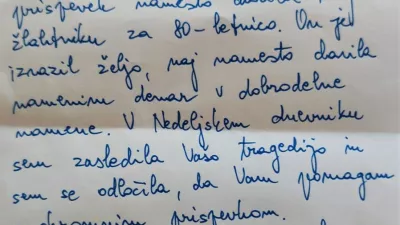 prispevek namesto
žlahtniku za 80-letnico. On je
izrazil željo, naj namesto darila
namenim denar v dobrodelne
namene. V Nedeljskem dnevniku
sem zasledila Vašo tragedijo in
sem se odločila, da Vam pomagam
skromnim prispevkom.